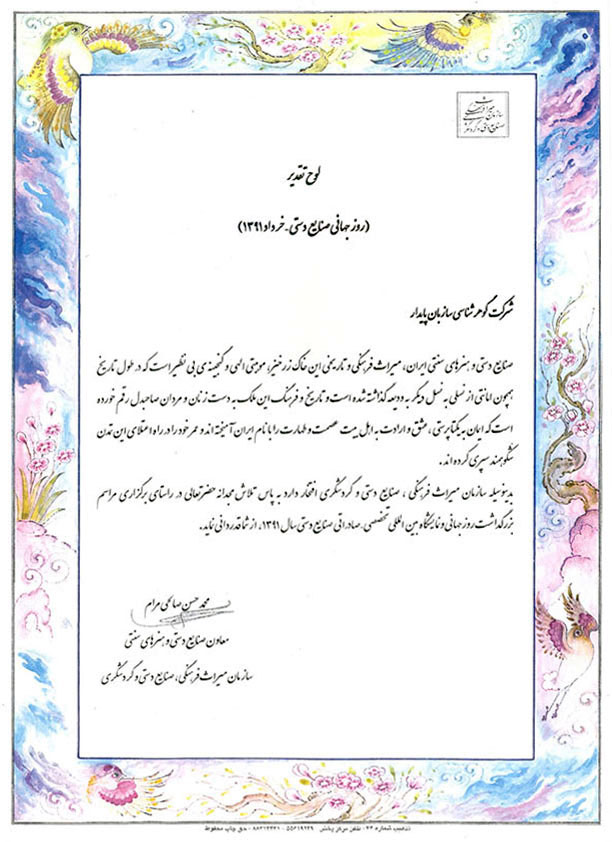 سازمان میراث فرهنگی
صنایع دستی و گردشگری
لوح تقدیر
(روز جهانی صنایع دستی - خرداد ۱۳۹۱)
شرکت گوهرشناسی سازبان پایدار
صنایع دستی و هنرهای سنتی ایران، میراث فرهنگی و تاریخی این خاک زرخیز، موهبتی الهی و گنجینه ی بی نظیر است که در طول تاریخ
همچون امانتی از نسلی به نسل دیگر به ودیعه گذاشته شده است و تاریخ و فرهنگ این ملک به دست زنان و مردان صاحبدل رقم خورده
است که ایمان به یکتاپرستی، عشق و ارادت به اهل بیت عصمت و طهارت را با نام ایران آمیخته اند و عمر خود را در راه اعتلای این تمدن
شکوهمند سپری کرده اند.
بدینوسیله سازمان میراث فرهنگی، صنایع دستی و گردشگری افتخار دارد به پاس تلاش مجدانه حضرتعالی در راستای برگزاری مراسم
بزرگداشت روز جهانی و نمایشگاه بین المللی تخصصی - صادراتی صنایع دستی سال ۱۳۹۱، از شما قدردانی نماید.
محمد حسن صالحی مرام
معاون صنایع دستی و هنرهای سنتی
سازمان میراث فرهنگی، صنایع دستی و گردشگری
تذهیب شماره ۲۳ - تلفن مرکز پخش - حق چاپ محفوظ